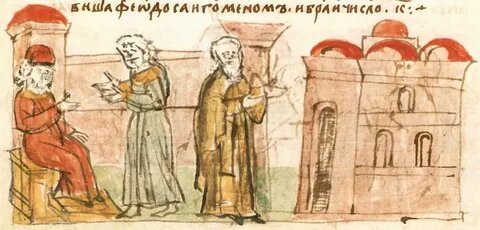 биша феѡдоса игоменомъ. и браи число. к҃ :~